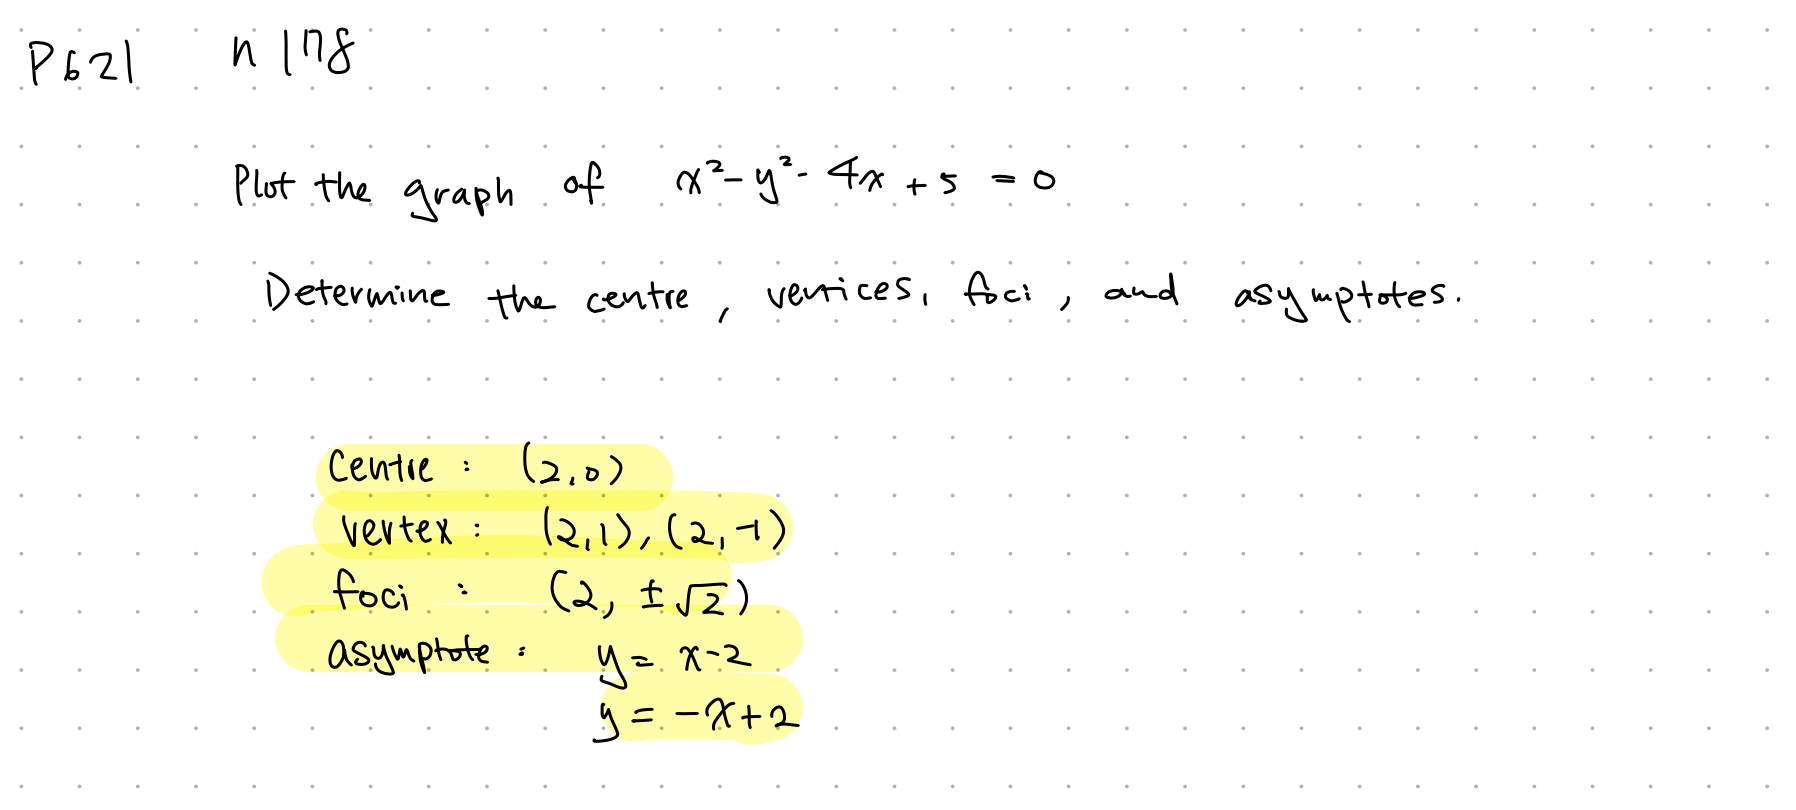 P621 n 178
Plot the graph of x² - y² - 4x + 5 = 0
Determine the centre, vertices, foci, and asymptotes.
Centre : (2,0)
vertex : (2,1), (2,-1)
foci : (2, ±√2)
asymptote : y = x-2
y = -x+2